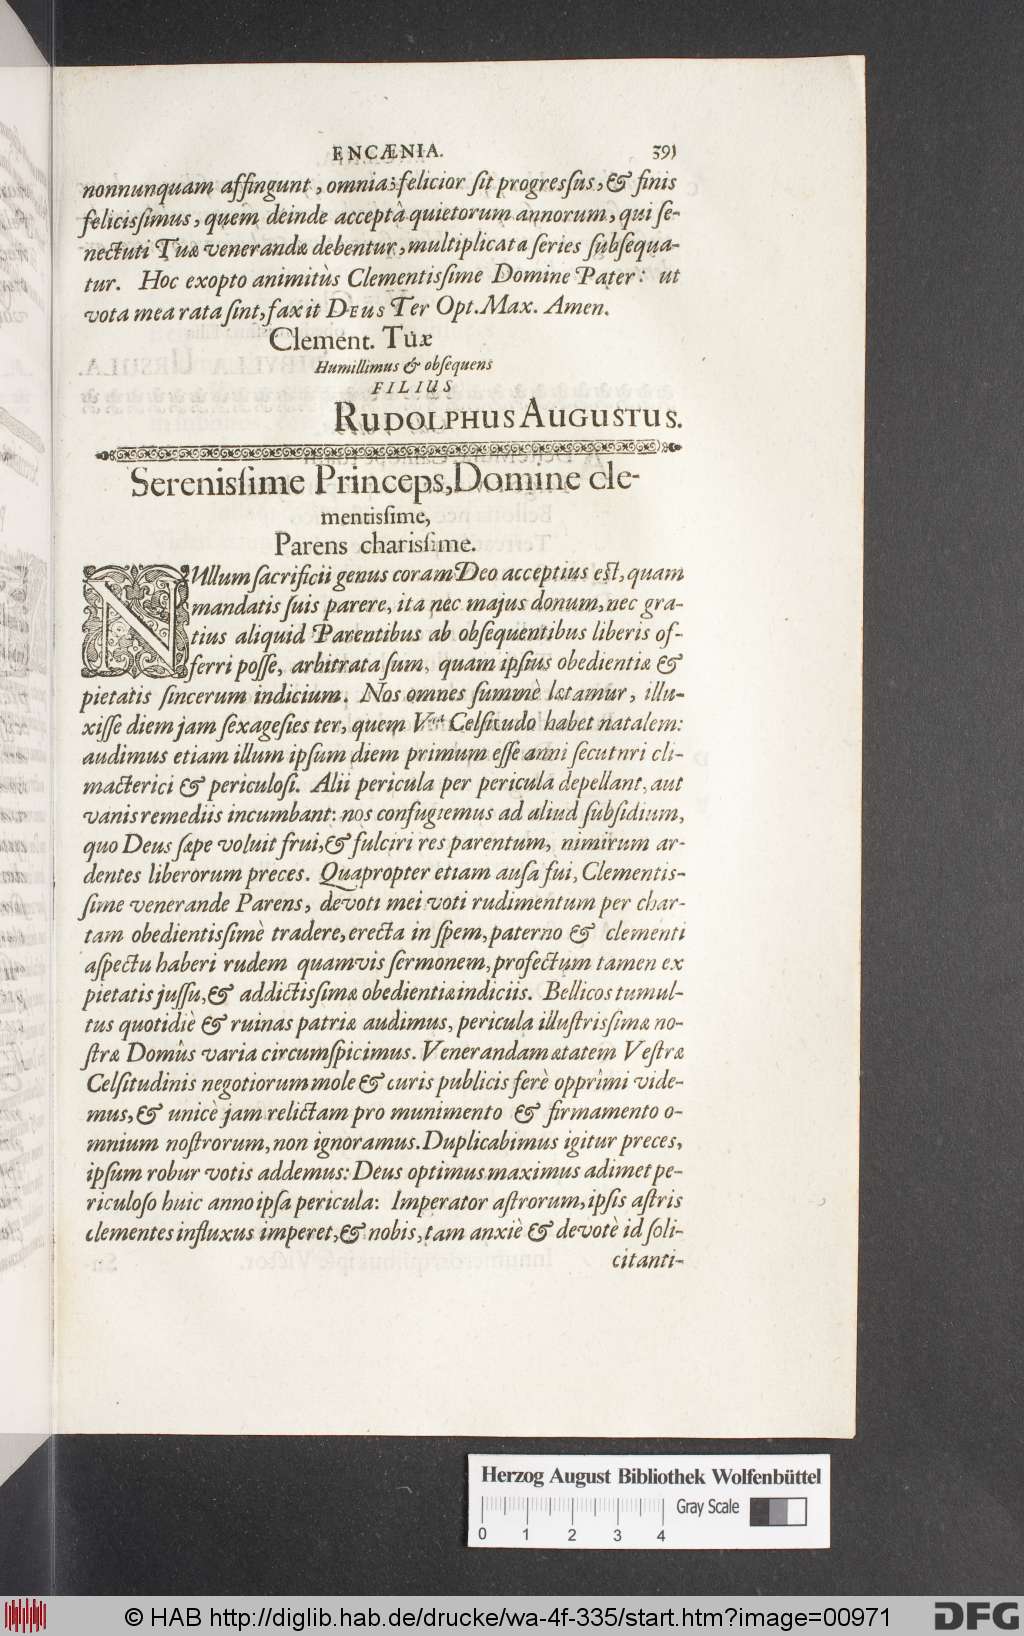 ENCÆNIA. 391
nonnunquam affingunt, omnia; felicior ſit progreſſus, & finis
feliciſſimus, quem deinde acceptà quietorum annorum, qui ſe-
nectuti Tuæ venerandæ debentur, multiplicata ſeries ſubſequa-
tur. Hoc exopto animitùs Clementiſſime Domine Pater: ut
vota mea rata ſint, faxit DEUS Ter Opt. Max. Amen.
Clement. Tuæ
Humillimus & obſequens
FILIUS
RUDOLPHUS AUGUSTUS.
Sereniſſime Princeps, Domine cle-
mentiſſime,
Parens chariſſime.
NUllum ſacrificii genus coram Deo acceptius eſt, quam
mandatis ſuis parere, ita nec majus donum, nec gra-
tius aliquid Parentibus ab obſequentibus liberis of-
ferri poſſe, arbitrata ſum, quam ipſius obedientiæ &
pietatis ſincerum indicium. Nos omnes ſummè lætamur, illu-
xiſſe diem jam ſexageſies ter, quem Vra Celſitudo habet natalem:
audimus etiam illum ipſum diem primum eſſe anni ſecuturi cli-
macterici & periculoſi. Alii pericula per pericula depellant, aut
vanis remediis incumbant: nos confugiemus ad aliud ſubſidium,
quo Deus ſæpe voluit frui, & fulciri res parentum, nimirum ar-
dentes liberorum preces. Quapropter etiam auſa fui, Clementiſ-
ſime venerande Parens, devoti mei voti rudimentum per char-
tam obedientiſſimè tradere, erecta in ſpem, paterno & clementi
aſpectu haberi rudem quamvis ſermonem, profectum tamen ex
pietatis juſſu, & addictiſſimæ obedientiæ indiciis. Bellicos tumul-
tus quotidiè & ruinas patriæ audimus, pericula illuſtriſſimæ no-
ſtræ Domûs varia circumſpicimus. Venerandam ætatem Veſtræ
Celſitudinis negotiorum mole & curis publicis ferè opprimi vide-
mus, & unicè jam relictam pro munimento & firmamento o-
mnium noſtrorum, non ignoramus. Duplicabimus igitur preces,
ipſum robur votis addemus: Deus optimus maximus adimet pe-
riculoſo huic anno ipſa pericula: Imperator aſtrorum, ipſis aſtris
clementes influxus imperet, & nobis, tam anxiè & devotè id ſoli-
citanti-
Herzog August Bibliothek Wolfenbüttel
Gray Scale
0 1 2 3 4
© HAB http://diglib.hab.de/drucke/wa-4f-335/start.htm?image=00971
DFG